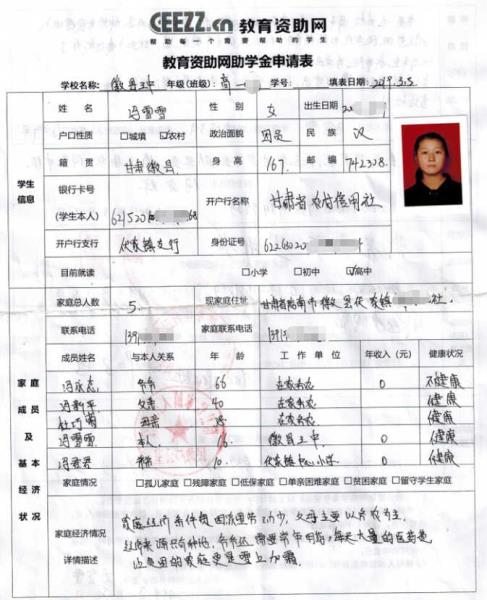 GEEZZ.cn 教育资助网
帮助每一个需要帮助的学生
教育资助网助学金申请表
学校名称： 徽县三中 年级(班级)： 高一 学号： 填表日期： 2019.3.5
学生信息
姓名 冯雪雪 性别 女 出生日期 20
户口性质 □城填 ☑农村 政治面貌 团员 民族 汉
籍贯 甘肃徽县 身高 167 邮编 742308
银行卡号 (学生本人) 621520 68 开户行名称 甘肃省农村信用社
开户行支行 伏家镇支行 身份证号
目前就读 □小学 □初中 ☑高中
家庭成员及基本经济状况
家庭总人数 5. 现家庭住址 甘肃省陇南市徽县伏家镇 社.
联系电话 139 家庭联系电话
成员姓名 与本人关系 年龄 工作单位 年收入（元） 健康状况
冯永志 爷爷 66 在家务农 0 不健康
冯新平 父亲 40 在家务农 健康
杜巧菊 母亲 在家务农 健康
冯雪雪 本人 16 徽县三中 0 健康
冯 10 伏家镇中心小学 0 健康
家庭情况 □孤儿家庭 □残障家庭 □低保家庭 □单亲困难家庭 □贫困家庭 □留守学生家庭
家庭经济情况详情描述
家庭经济条件贫困,父母主要以务农为主.
经济来源只有种地, 爷爷还需要常年用药,每天大量的医药费,
让贫困的家庭更是雪上加霜.